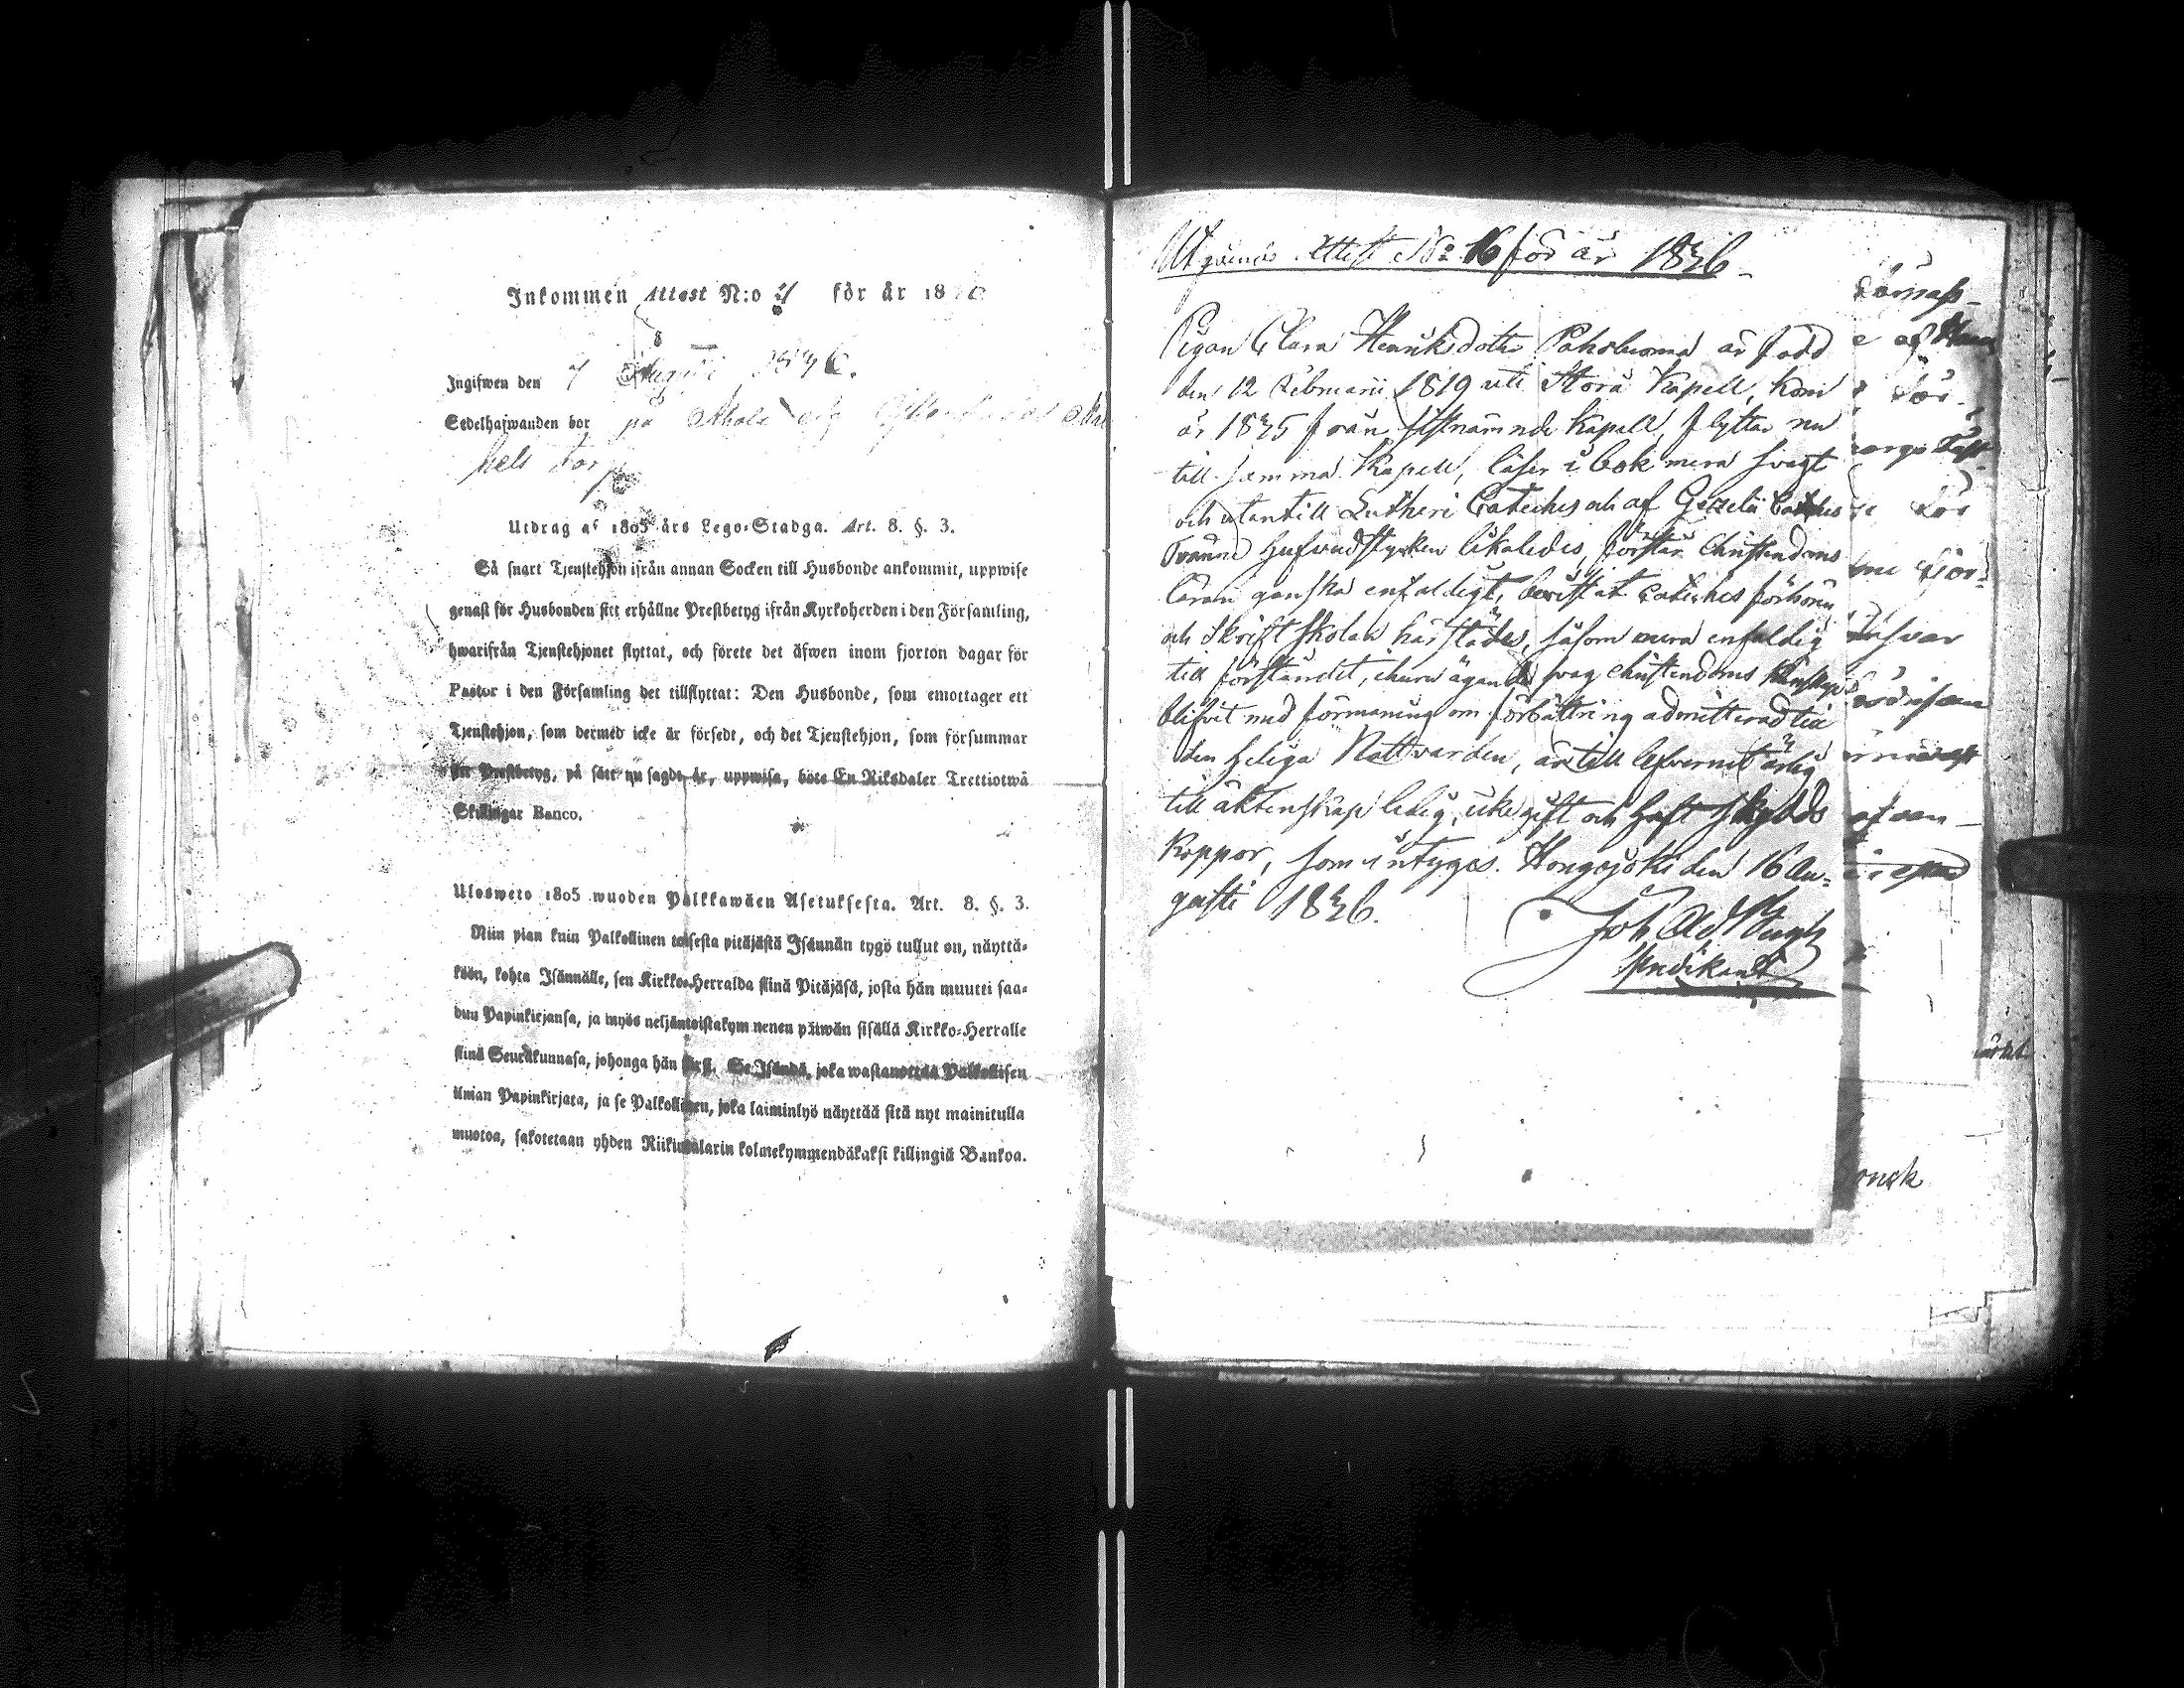 Inkommen Attest N:o 21 för år 18
Ingifwen den 7 Augusti 1836.
Sedelhafwanden bor på
hels torp
Utdrag af 1805 års Lego-Stadga. Art. 8. §. 3.
Så snart Tjenstehjon ifrån annan Socken till Husbonde ankommit, uppwise
genast för Husbonden sitt erhållne Prestbetyg ifrån Kyrkoherden i den Församling,
hwarifrån Tjenstehjonet flyttat, och förete det äfwen inom fjorton dagar för
Pastor i den Församling det tillflyttat: Den Husbonde, som emottager ett
Tjenstehjon, som dermed icke är försedt, och det Tjenstehjon, som försummar
sitt Prestbetyg, på sätt nu sagdt är, uppwisa, böte En Riksdaler Trettiotwå
Skillingar Banco.
Ulosweto 1805 wuoden Palkkawäen Asetuksesta. Art. 8. §. 3.
Niin pian kuin Palkollinen toisesta pitäjästä Isännän tygö tullut on, näyttä-
köön, kohta Isännälle, sen Kirkko-Herralda siinä Pitäjäsä, josta hän muutti saa-
dun Papinkirjansa, ja myös neljäntoistakymmenen päiwän sisällä Kirkko-Herralle
siinä Seurakunnasa, johonga hän siirsi. Se Isändä, joka wastanottaa Palkollisen
ilman Papinkirjata, ja se Palkollinen, joka laiminlyö näyttää sitä nyt mainitulla
muotoa, sakotetaan yhden Riikintalarin kolmekymmendäkaksi killingiä Bankoa.
Utgående Attest No 16 för år 1836
Pigan Clara Henriksdotter Paholuoma är född
den 12 Februarii 1819 uti Storå Kapell, kom
år 1835 från sistnämnde Kapell, flyttar nu
till samma Kapell, läser i bok mera svagt
och utantill Lutheri Cateches och af Gezelii Cateches
Tvänne Hufvudstycken likaledes, förstår Christendoms
läran ganska enfaldigt, bevistat Cateches förhören
och Skrift Skolan härstädes, såsom mera enfaldig
till förståndet, ehuru ägande svag Christendoms Kunskap
blifvit med förmaning om förbättring admitterad till
den heliga Nattvarden, är till lefvernet ärlig
till äktenskap ledig, icke gift och haft skydds
Koppor, som intygas. Hongojoki den 16 Au-
gusti 1836.
Joh Ad
Predikant